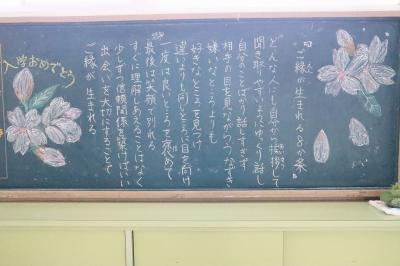 "ご縁が生まれる8か条"
どんな人にも自分から挨拶して
聞き取りやすいようにゆっくり話し
自分のことばかり話しすぎず
相手の目を見ながらうなずき
嫌いなところよりも
好きなところを見つけ
違いよりも同じところに目を向け
一度は良いところを褒めて
最後は笑顔で別れる
すぐに理解しあえることはなく
少しずつ信頼関係を築けばいい
出会いを大切にすることで
ご縁が生まれる
入学おめでとう